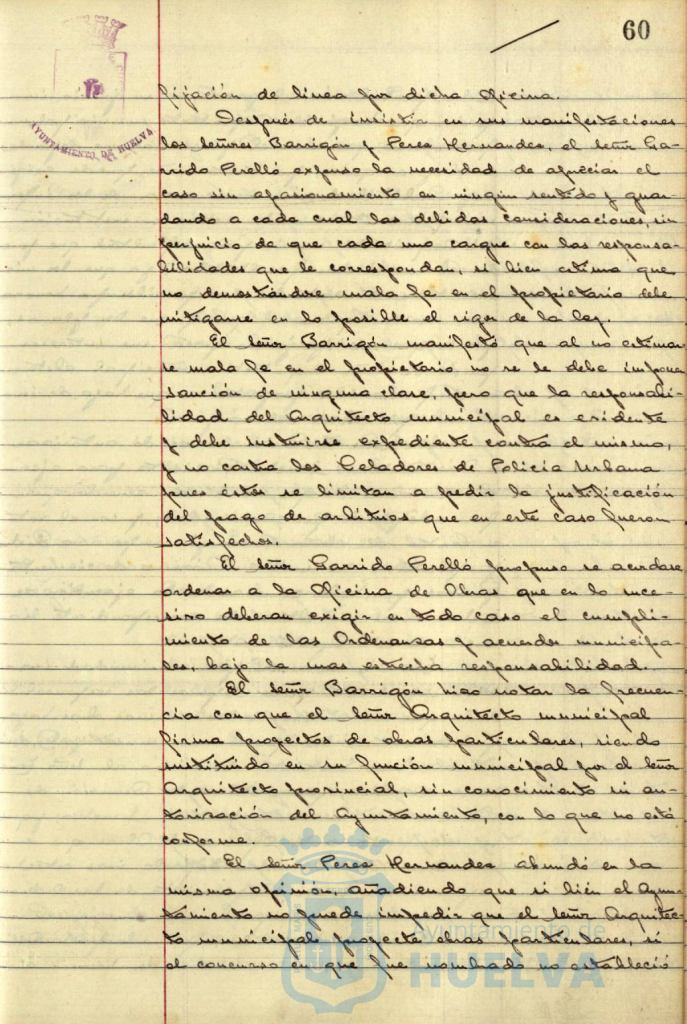 60
AYUNTAMIENTO DE HUELVA
fijación de línea por dicha Oficina.
Después de insistir en sus manifestaciones
los señores Barrigón y Perez Hernandez, el señor Ga-
rrido Perelló expuso la necesidad de apreciar el
caso sin apasionamiento en ningún sentido y guar-
dando a cada cual las debidas consideraciones, sin
perjuicio de que cada uno cargue con las responsa-
bilidades que le correspondan, si bien estima que
no demostrándose mala fe en el propietario debe
mitigarse en lo posible el rigor de la ley.
El señor Barrigón manifestó que al no estimar-
se mala fe en el propietario no se le debe imponer
sanción de ninguna clase, pero que la responsabi-
lidad del Arquitecto municipal es evidente
y debe instruirse expediente contra el mismo,
y no contra los Celadores de Policía Urbana
pues éstos se limitan a pedir la justificación
del pago de arbitrios que en este caso fueron
satisfechos.
El señor Garrido Perelló propuso se acordase
ordenar a la Oficina de Obras que en lo suce-
sivo deberan exigir en todo caso el cumpli-
miento de las Ordenanzas y acuerdos municipa-
les, bajo la mas estrecha responsabilidad.
El señor Barrigón hizo notar la frecuen-
cia con que el señor Arquitecto municipal
firma proyectos de obras particulares, siendo
sustituido en su función municipal por el señor
Arquitecto provincial, sin conocimiento ni au-
torización del Ayuntamiento, con lo que no está
conforme.
El señor Perez Hernandez abundó en la
misma opinión, añadiendo que si bién el Ayun-
tamiento no puede impedir que el señor Arquitec-
to municipal proyecte obras particulares, si
el concurso en que fue nombrado no estableció
Ayuntamiento de
HUELVA